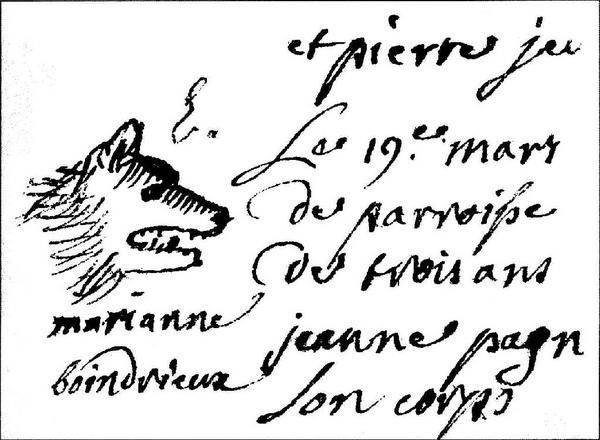 E.
marianne
boindrieux
et pierre jeu
Le 19.e mars
de parroiſse
de trois ans
jeanne pagn
son corps